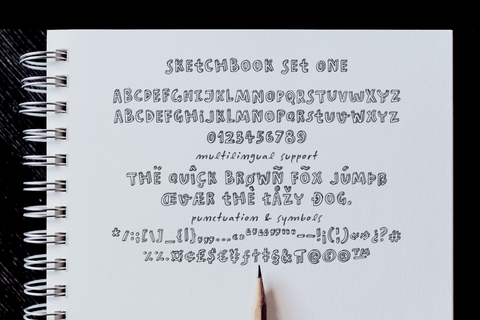 SKETCHBOOK SET ONE
ABCDEFGHIJKLMNOPQRSTUVWXYZ
ABCDEFGHIJKLMNOPQRSTUVWXYZ
0123456789
multilingual support
THË QUÎÇK BRØWÑ FÕX JÚMÞß
ŒVÆR THÈ ŁÅŽY ÐOG.
punctuation & symbols
*/:;[\]_{|}
§&
@©®™